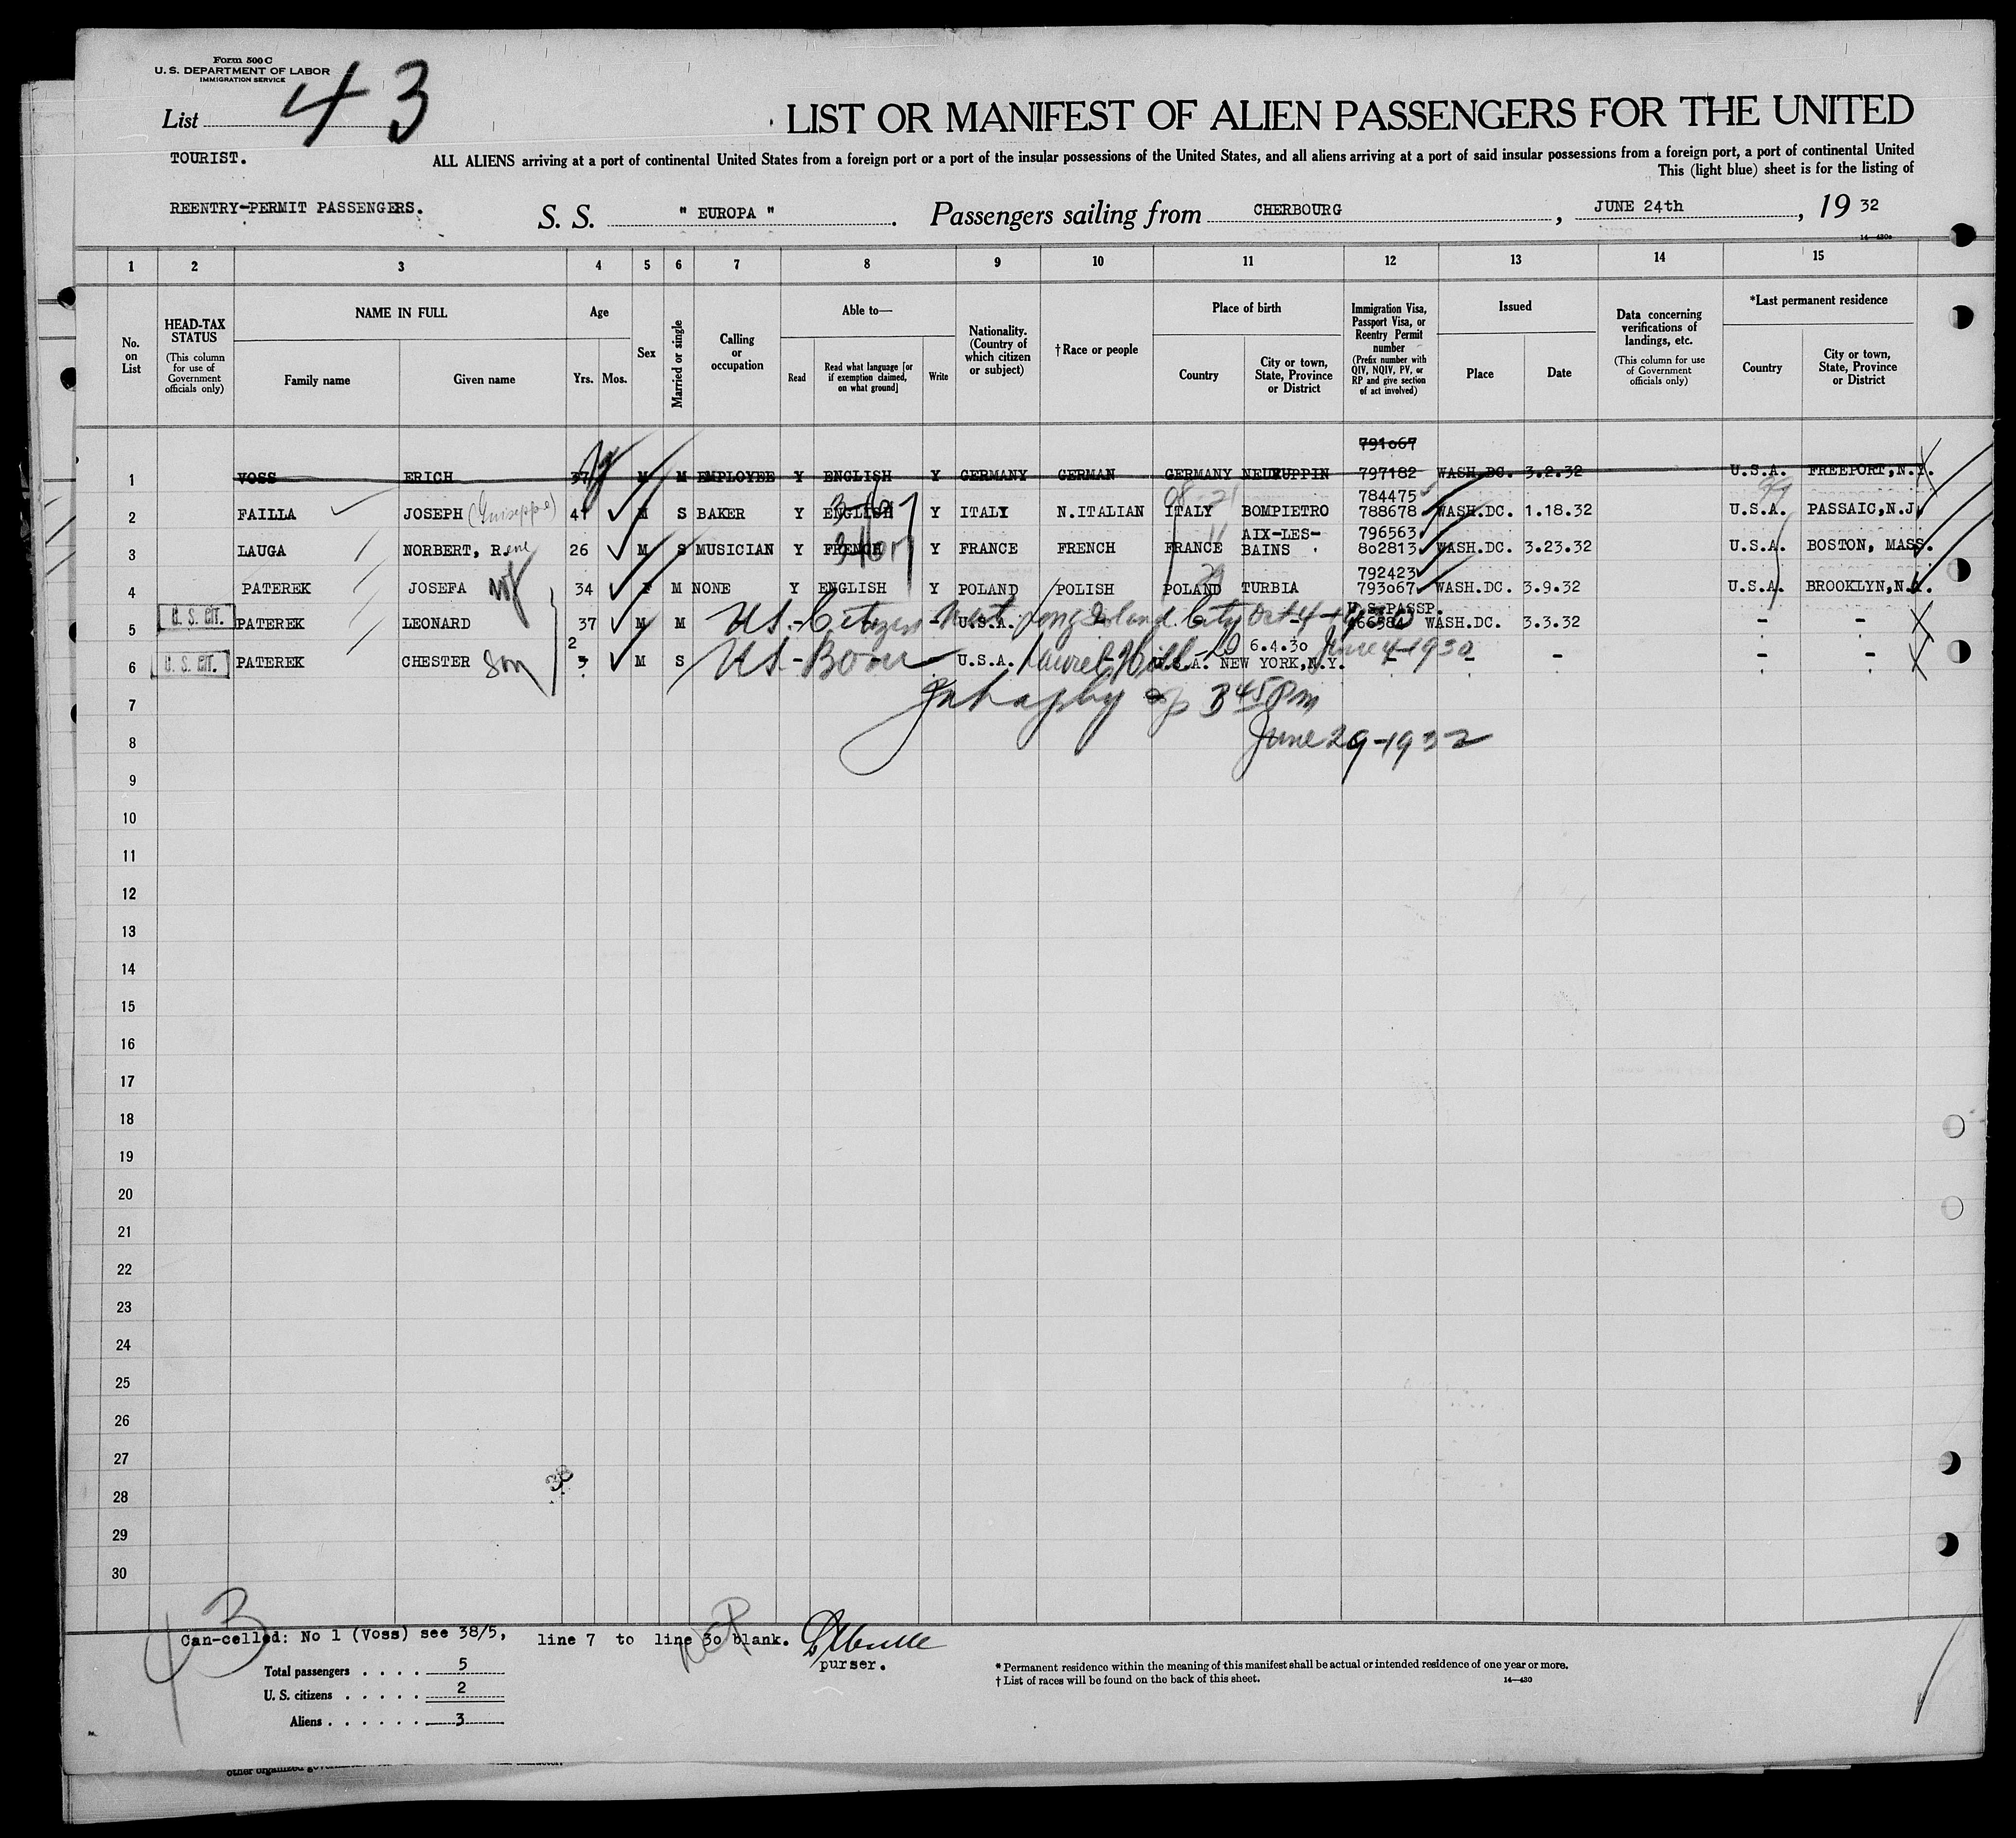 Form 500 C
U. S. DEPARTMENT OF LABOR
IMMIGRATION SERVICE
List 43
LIST OR MANIFEST OF ALIEN PASSENGERS FOR THE UNITED
TOURIST.
ALL ALIENS arriving at a port of continental United States from a foreign port or a port of the insular possessions of the United States, and all aliens arriving at a port of said insular possessions from a foreign port, a port of continental United
This (light blue) sheet is for the listing of
REENTRY-PERMIT PASSENGERS.
S. S. " EUROPA ". Passengers sailing from CHERBOURG, JUNE 24th, 19 32
14—430a
1 2 3 4 5 6 7 8 9 10 11 12 13 14 15
No. on List
HEAD-TAX STATUS (This column for use of Government officials only)
NAME IN FULL
Family name
Given name
Age
Yrs. Mos.
Sex
Married or single
Calling or occupation
Able to—
Read
Read what language [or if exemption claimed, on what ground]
Write
Nationality. (Country of which citizen or subject)
†Race or people
Place of birth
Country
City or town, State, Province or District
Immigration Visa, Passport Visa, or Reentry Permit number (Prefix number with QIV, NQIV, PV, or RP and give section of act involved)
Issued
Place
Date
Data concerning verifications of landings, etc. (This column for use of Government officials only)
*Last permanent residence
Country
City or town, State, Province or District
791067
1 VOSS ERICH 37 M M EMPLOYEE Y ENGLISH Y GERMANY GERMAN GERMANY NEURUPPIN 797182 WASH.DC. 3.2.32 U.S.A. FREEPORT,N.Y.
784475
2 FAILLA JOSEPH (Guiseppe) 41 M S BAKER Y ENGLISH Y ITALY N.ITALIAN ITALY BOMPIETRO 788678 WASH.DC. 1.18.32 U.S.A. PASSAIC,N.J.
AIX-LES- 796563
3 LAUGA NORBERT, R.ene 26 M S MUSICIAN Y FRENCH Y FRANCE FRENCH FRANCE BAINS 802813 WASH.DC. 3.23.32 U.S.A. BOSTON, MASS.
792423
4 PATEREK JOSEFA wf 34 F M NONE Y ENGLISH Y POLAND POLISH POLAND TURBIA 793067 WASH.DC. 3.9.32 U.S.A. BROOKLYN,N.Y.
U.S.PASSP.
5 U. S. CIT. PATEREK LEONARD 37 M M US. Citizen Nat Long Island City Oct 4-1930 - U.S.A. 466584 WASH.DC. 3.3.32 - -
2 6.4.30
6 U. S. CIT. PATEREK CHESTER Son 3 M S US - Born U.S.A. Laurel Hill L I June 4-1930 U.S.A. NEW YORK,N.Y. - - - - -
7 3 45 Pm
8 June 29-1932
9
10
11
12
13
14
15
16
17
18
19
20
21
22
23
24
25
26
27
28
29
30
38
43
Can-celled: No 1 (Voss) see 38/5, line 7 to line 30 blank.
purser.
Total passengers . . . . 5
U. S. citizens . . . . . 2
Aliens . . . . . . 3
* Permanent residence within the meaning of this manifest shall be actual or intended residence of one year or more.
† List of races will be found on the back of this sheet.
14—430